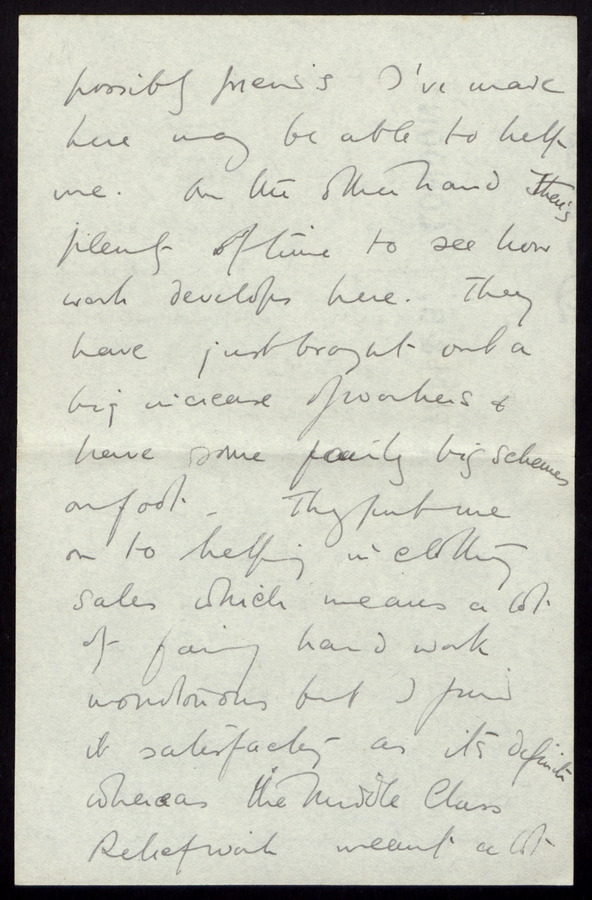 possibly friends I've made
here may be able to help
me. On the other hand there's
plenty of time to see how
work develops here. They
have just brought out a
big increase of workers &
have some fairly big schemes
on foot. They put me
on to helping in clothing
sales which means a lot
of fairly hard work
monotonous but I find
it satisfactory as it's definite
whereas the Middle Class
Relief work meant a lot